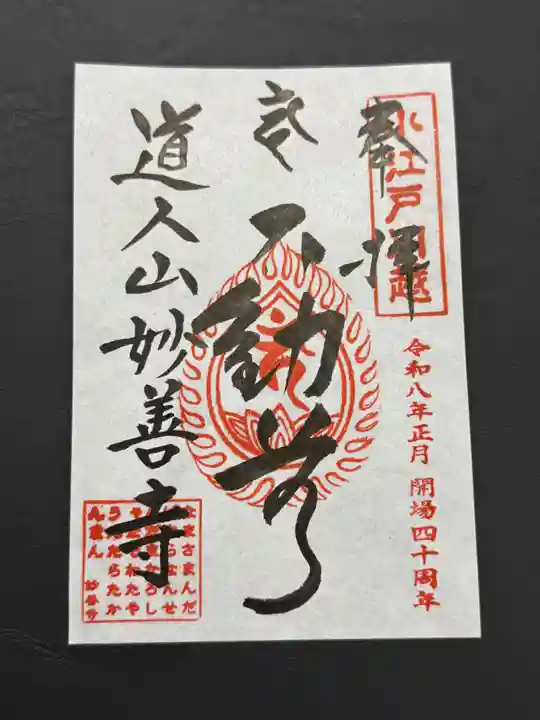 奉拝
小江戸川越
令和八年正月 開場四十周年
不動尊
道人山妙善寺
のまくさまんだ
ばさらなんせ
んだまかろし
やだそわたや
うんたらたか
んまん
妙善寺